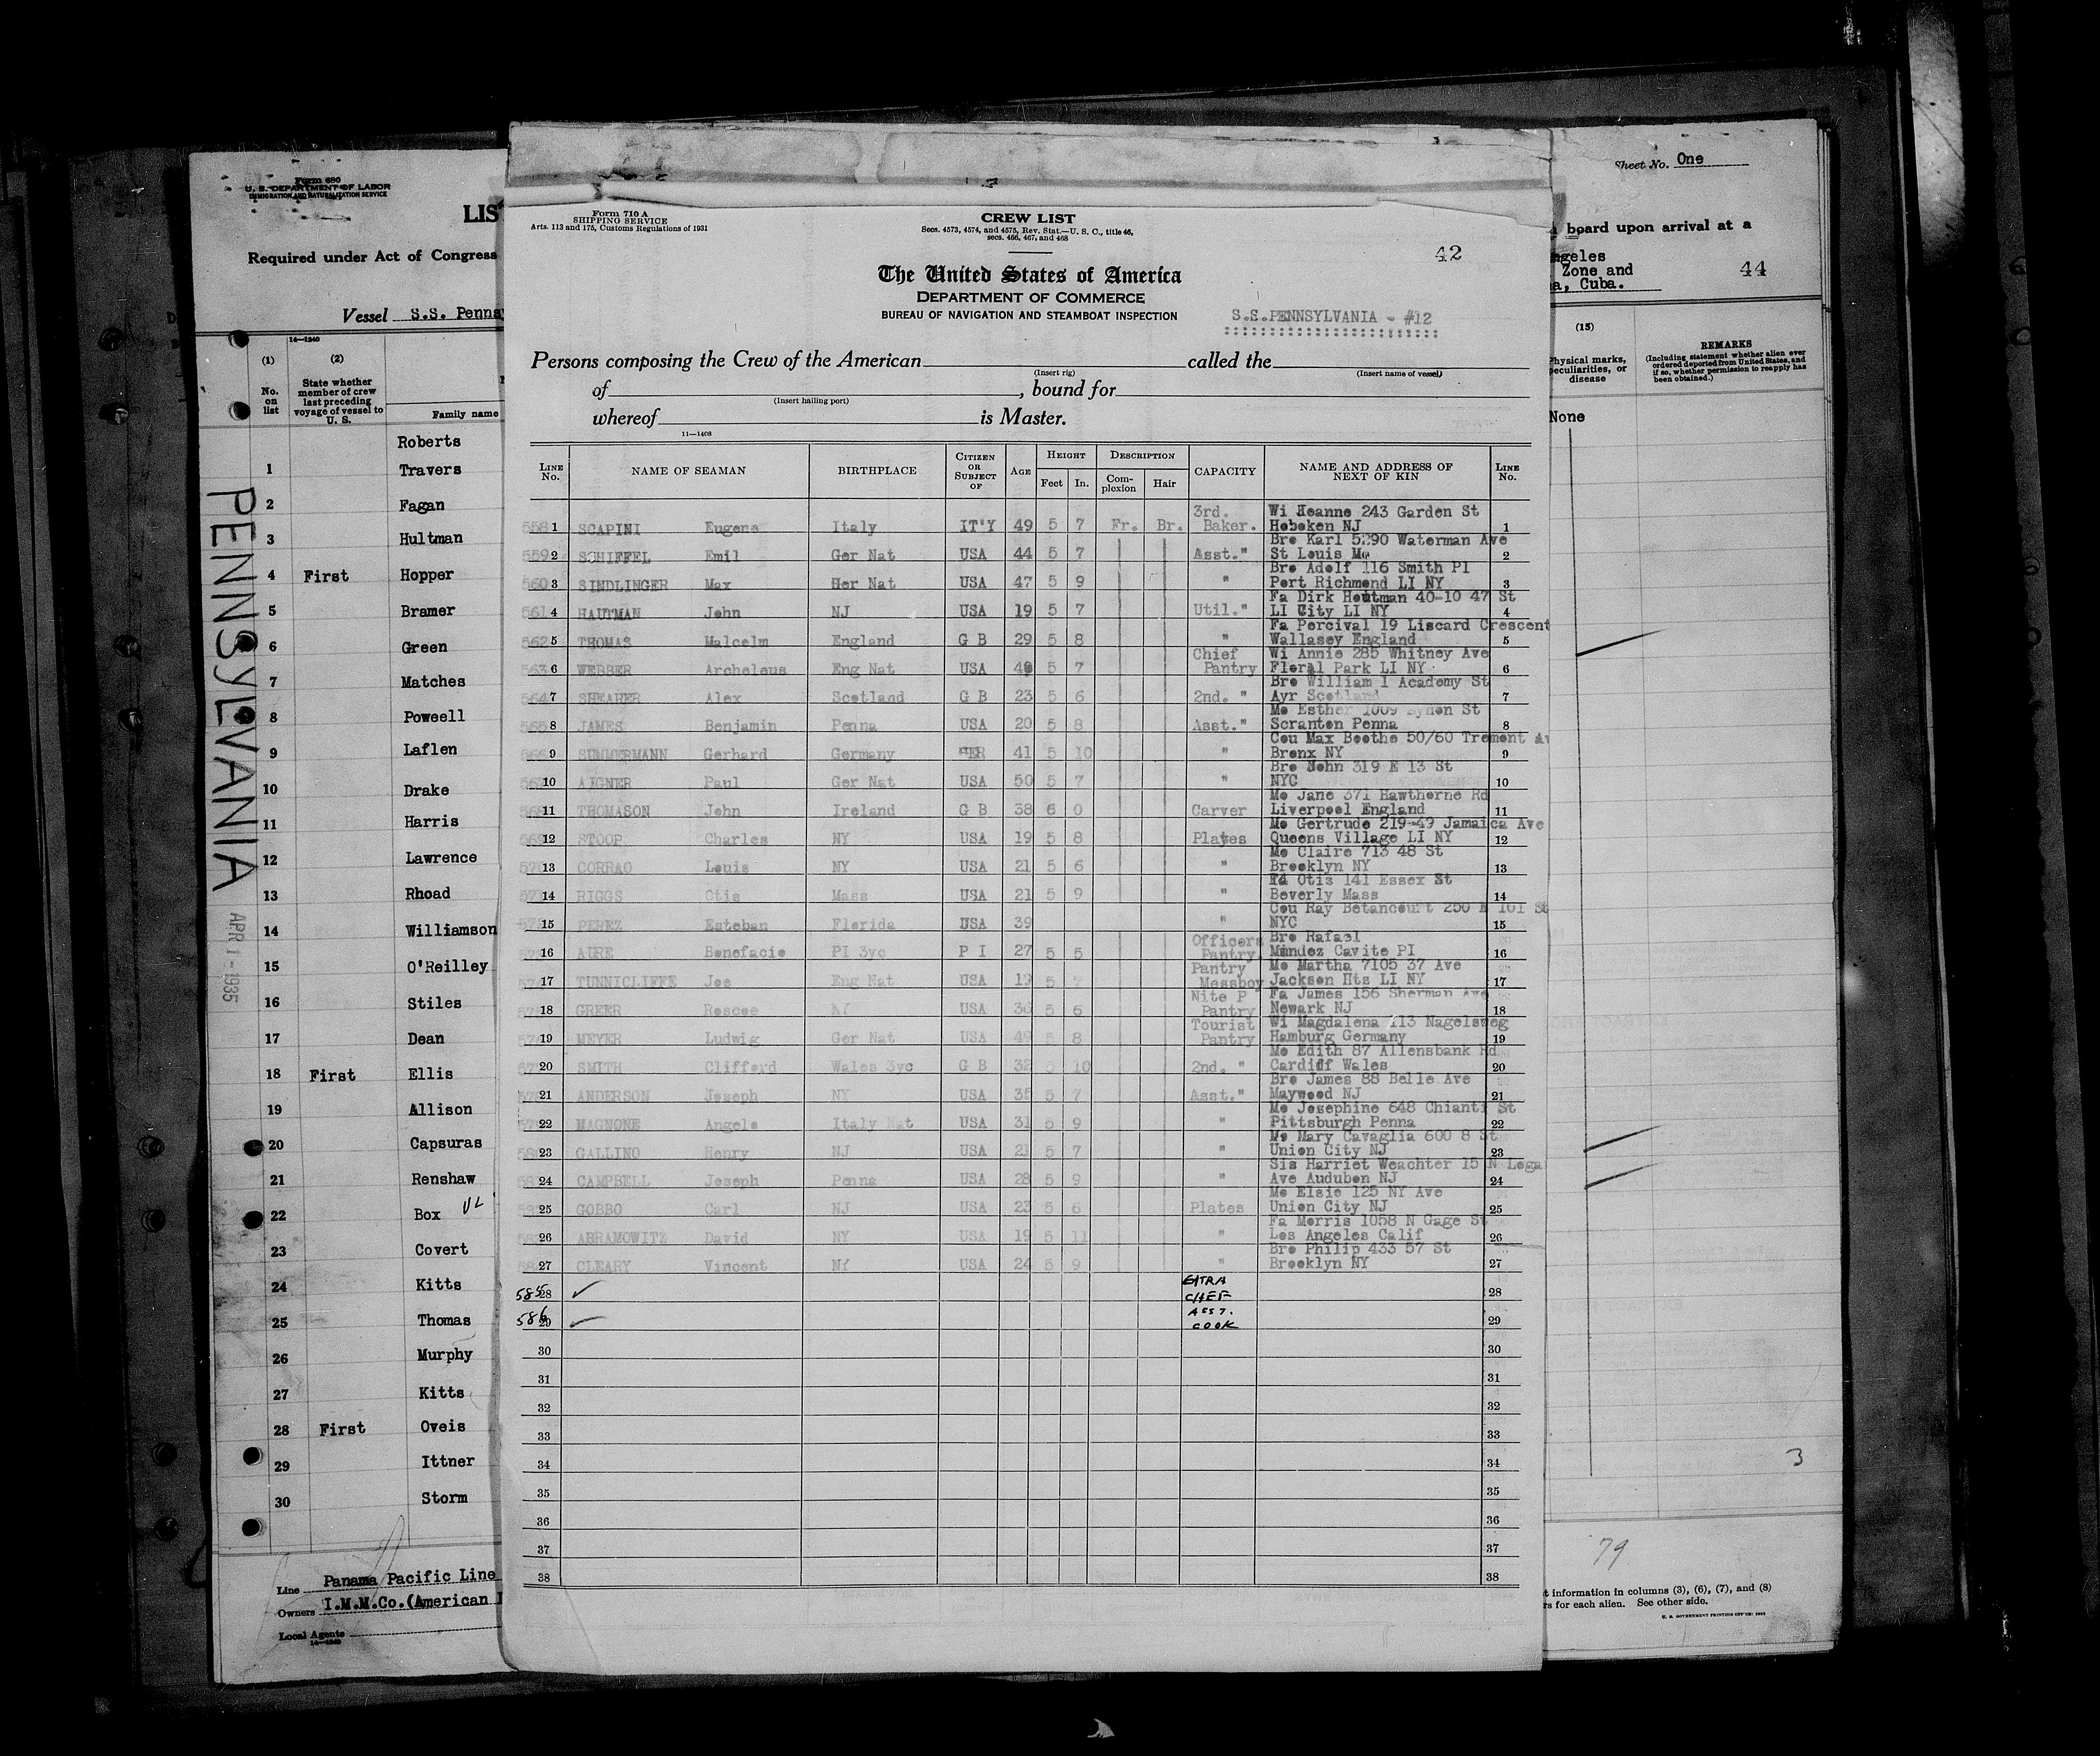 Form 680
U. S. DEPARTMENT OF LABOR
IMMIGRATION AND NATURALIZATION SERVICE
LIS
Required under Act of Congress
Vessel S.S. Penns
14—1240
(1)
(2)
No. on list
State whether member of crew last preceding voyage of vessel to U. S.
Family name
Roberts
1 Travers
2 Fagan
3 Hultman
4 First Hopper
5 Bramer
6 Green
7 Matches
8 Poweell
9 Laflen
10 Drake
11 Harris
12 Lawrence
13 Rhoad
14 Williamson
15 O'Reilley
16 Stiles
17 Dean
18 First Ellis
19 Allison
20 Capsuras
21 Renshaw
22 Box
23 Covert
24 Kitts
25 Thomas
26 Murphy
27 Kitts
28 First Oveis
29 Ittner
30 Storm
PENNSYLVANIA
APR 1 - 1935
Line Panama Pacific Line
Owners I.M.M.Co.(American
Local Agents
14—1240
Form 710 A
SHIPPING SERVICE
Arts. 113 and 175, Customs Regulations of 1931
CREW LIST
Secs. 4573, 4574, and 4575, Rev. Stat.—U. S. C., title 46,
secs. 466, 467, and 468
42
The United States of America
DEPARTMENT OF COMMERCE
BUREAU OF NAVIGATION AND STEAMBOAT INSPECTION
S.S.PENNSYLVANIA - #12
Persons composing the Crew of the American called the
(Insert rig) (Insert name of vessel)
of , bound for
(Insert hailing port)
whereof is Master.
11—1408
LINE No. NAME OF SEAMAN BIRTHPLACE CITIZEN OR SUBJECT OF AGE HEIGHT Feet In. DESCRIPTION Complexion Hair CAPACITY NAME AND ADDRESS OF NEXT OF KIN LINE No.
3rd. Wi Jeanne 243 Garden St
558 1 SCAPINI Eugene Italy IT'Y 49 5 7 Fr. Br. Baker. Hoboken NJ 1
Bro Karl 5290 Waterman Ave
559 2 SCHIFFEL Emil Ger Nat USA 44 5 7 Asst." St Louis Mo 2
Bro Adolf 116 Smith Pl
560 3 SINDLINGER Max Her Nat USA 47 5 9 " Port Richmond LI NY 3
Fa Dirk Houtman 40-10 47 St
561 4 HAUTMAN John NJ USA 19 5 7 Util." LI City LI NY 4
Fa Percival 19 Liscard Crescent
562 5 THOMAS Malcolm England G B 29 5 8 " Wallasey England 5
Chief Wi Annie 285 Whitney Ave
563 6 WEBBER Archelaus Eng Nat USA 5 7 Pantry Floral Park LI NY 6
Bro William 1 Academy St
564 7 SHEARER Alex Scotland G B 23 5 6 2nd. " Ayr Scotland 7
Mo Esther 1009 Bynon St
565 8 JAMES Benjamin Penna USA 20 5 8 Asst." Scranton Penna 8
Cou Max Boothe 50/60 Tremont Av
9 SUMMERMANN Gerhard Germany GER 41 5 10 " Bronx NY 9
Bro John 319 E 13 St
10 AIGNER Paul Ger Nat USA 50 5 7 " NYC 10
Mo Jane 371 Hawthorne Rd
11 THOMASON John Ireland G B 38 6 0 Carver Liverpool England 11
Mo Gertrude 219-49 Jamaica Ave
12 STOOP Charles NY USA 19 5 8 Plates Queens Village LI NY 12
Mo Claire 713 48 St
13 CORRAO Louis NY USA 21 5 6 " Brooklyn NY 13
Otis 141 Essex St
14 RIGGS Otis Mass USA 21 5 9 " Beverly Mass 14
Cou Ray Betancourt 250 E 101 St
15 PEREZ Esteban Florida USA 39 " NYC 15
Officers Bro Rafael
16 AURE Bonefacio PI 3yc P I 27 5 5 Pantry Mendez Cavite PI 16
Pantry Mo Martha 7105 37 Ave
17 TUNNICLIFFE Joe Eng Nat USA 19 5 7 Messboy Jackson Hts LI NY 17
Nite P Fa James 156 Sherman Ave
18 GREER Roscoe NY USA 36 5 6 Pantry Newark NJ 18
Tourist Wi Magdalena 113 Nagelsweg
19 MEYER Ludwig Ger Nat USA 49 5 8 Pantry Hamburg Germany 19
Mo Edith 87 Allensbank Rd
20 SMITH Clifford Wales 3yc G B 32 5 10 2nd. " Cardiff Wales 20
Bro James 88 Belle Ave
21 ANDERSON Joseph NY USA 35 5 7 Asst." Maywood NJ 21
Mo Josephine 648 Chianti St
22 MAGNONE Angelo Italy Nat USA 31 5 9 " Pittsburgh Penna 22
Mo Mary Cavaglia 600 8 St
23 GALLINO Henry NJ USA 21 5 7 " Union City NJ 23
Sis Harriet Weachter 15 N Loga
24 CAMPBELL Joseph Penna USA 28 5 9 " Ave Audubon NJ 24
Mo Elsie 125 NY Ave
25 GOBBO Carl NJ USA 23 5 6 Plates Union City NJ 25
Fa Morris 1058 N Gage St
26 ABRAMOWITZ David NY USA 19 5 11 " Los Angeles Calif 26
Bro Philip 433 57 St
27 CLEARY Vincent NY USA 24 5 9 " Brooklyn NY 27
585 28 ✓ EXTRA CHEF 28
586 29 ✓ ASST. COOK 29
30 30
31 31
32 32
33 33
34 34
35 35
36 36
37 37
38 38
Sheet No. One
board upon arrival at a
ngeles
Zone and
a, Cuba.
44
(15)
Physical marks, peculiarities, or disease
REMARKS
(Including statement whether alien ever ordered deported from United States, and if so, whether permission to reapply has been obtained.)
None
3
79
t information in columns (3), (6), (7), and (8)
rs for each alien. See other side.
U. S. GOVERNMENT PRINTING OFFICE: 1932